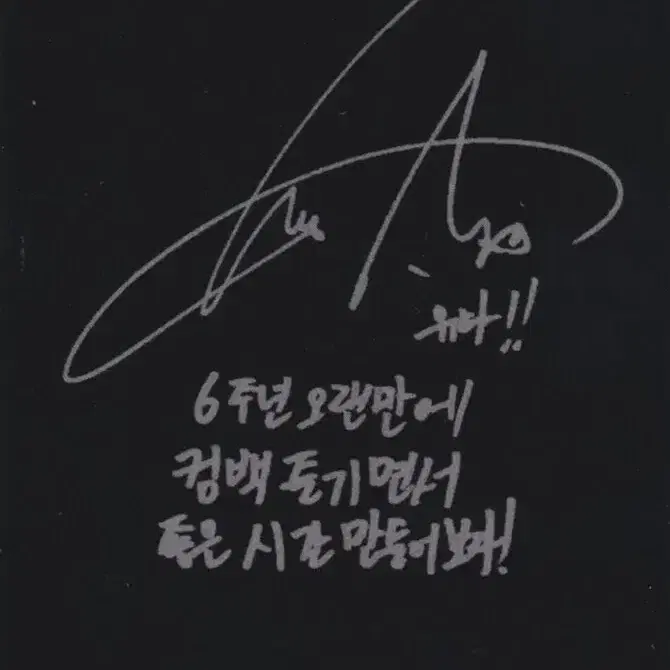 유타!!
6주년 오랜만에
컴백 즐기면서
좋은 시간 만들어보자!